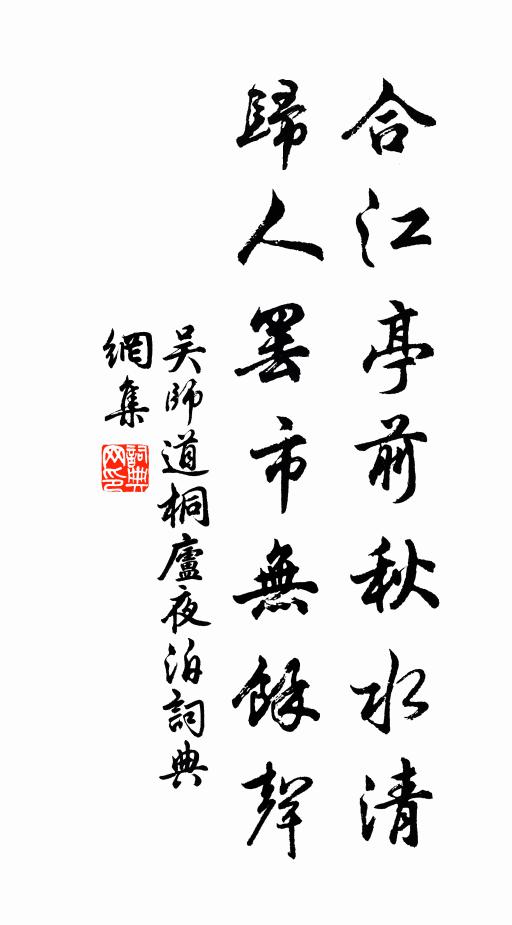 合江亭前秋水清
歸人罷市無餘聲
吴師道桐廬夜泊詞典
網集
詞典
网印